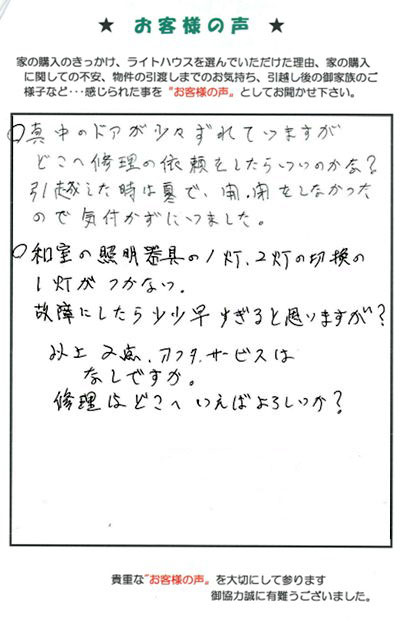 ★ お客様の声 ★
家の購入のきっかけ、ライトハウスを選んでいただけた理由、家の購入
に関しての不安、物件の引渡しまでのお気持ち、引越し後の御家族のご
様子など・・・感じられた事を“お客様の声”としてお聞かせ下さい。
○真中のドアが少々ずれていますが
どこへ修理の依頼をしたらいいのかな?
引越した時は夏で、開,閉をしなかった
ので気付かずにいました。
○和室の照明器具の1灯、2灯の切換の
1灯がつかない。
故障にしたら少々早すぎると思いますが?
以上 2点、アフタ,サービスは
なしですか。
修理はどこへいえばよろしいか?
貴重な“お客様の声”を大切にして参ります
御協力誠に有難うございました。